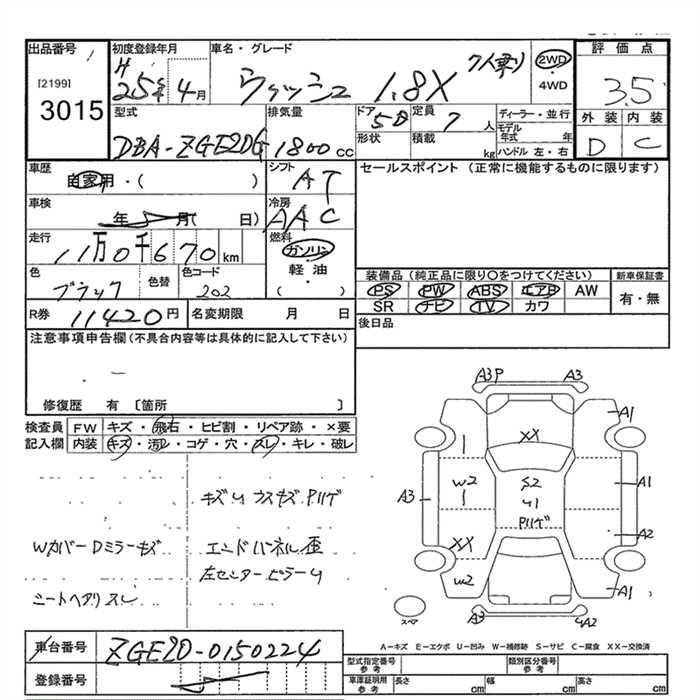 出品番号
[2199]
3015
初度登録年月
H 25年 4月
車名・グレード
ウィッシュ 1.8X 7人乗り
2WD
・
4WD
評価点
3.5
外装 内装
D C
型式
DBA-ZGE20G
排気量
1800 cc
ドア
5D
形状
定員
7 人
積載
kg
ディーラー・並行
モデル年式 年
ハンドル 左・右
車歴
自家用・( )
シフト
AT
セールスポイント (正常に機能するものに限ります)
車検
年 月( 日)
冷房
AAC
走行
11万0千670km
燃料
ガソリン
軽・油
・( )
色
ブラック
色替
色コード
202
装備品(純正品に限り○をつけてください)
新車保証書
PS PW ABS エアB AW
有・無
SR ナビ TV カワ
R券 11420円
名変期限 月 日
後日品
注意事項申告欄(不具合内容等は具体的に記入して下さい)
修復歴 有 〔箇所 〕
検査員
記入欄
FW キズ・飛石・ヒビ割・リペア跡・×要
内装 キズ・汚レ・コゲ・穴・スレ・キレ・破レ
キズUウスキズPハゲ
Wカバー Dミラーキズ
エンドパネル歪
左センターピラーU
シートヘタリスレ
A3P A3
A1
XX
W2
1
S2
U1
Pハゲ
A1
A3
A2
XX
W2
A1
A3 A2
スペア
A-キズ E-エクボ U-凹み W-補修跡 S-サビ C-腐食 XX-交換済
車台番号
ZGE20-0150224
登録番号
型式指定番号
参考
類別区分番号
参考
車庫証明用
参考
長さ cm
幅 cm
高さ cm